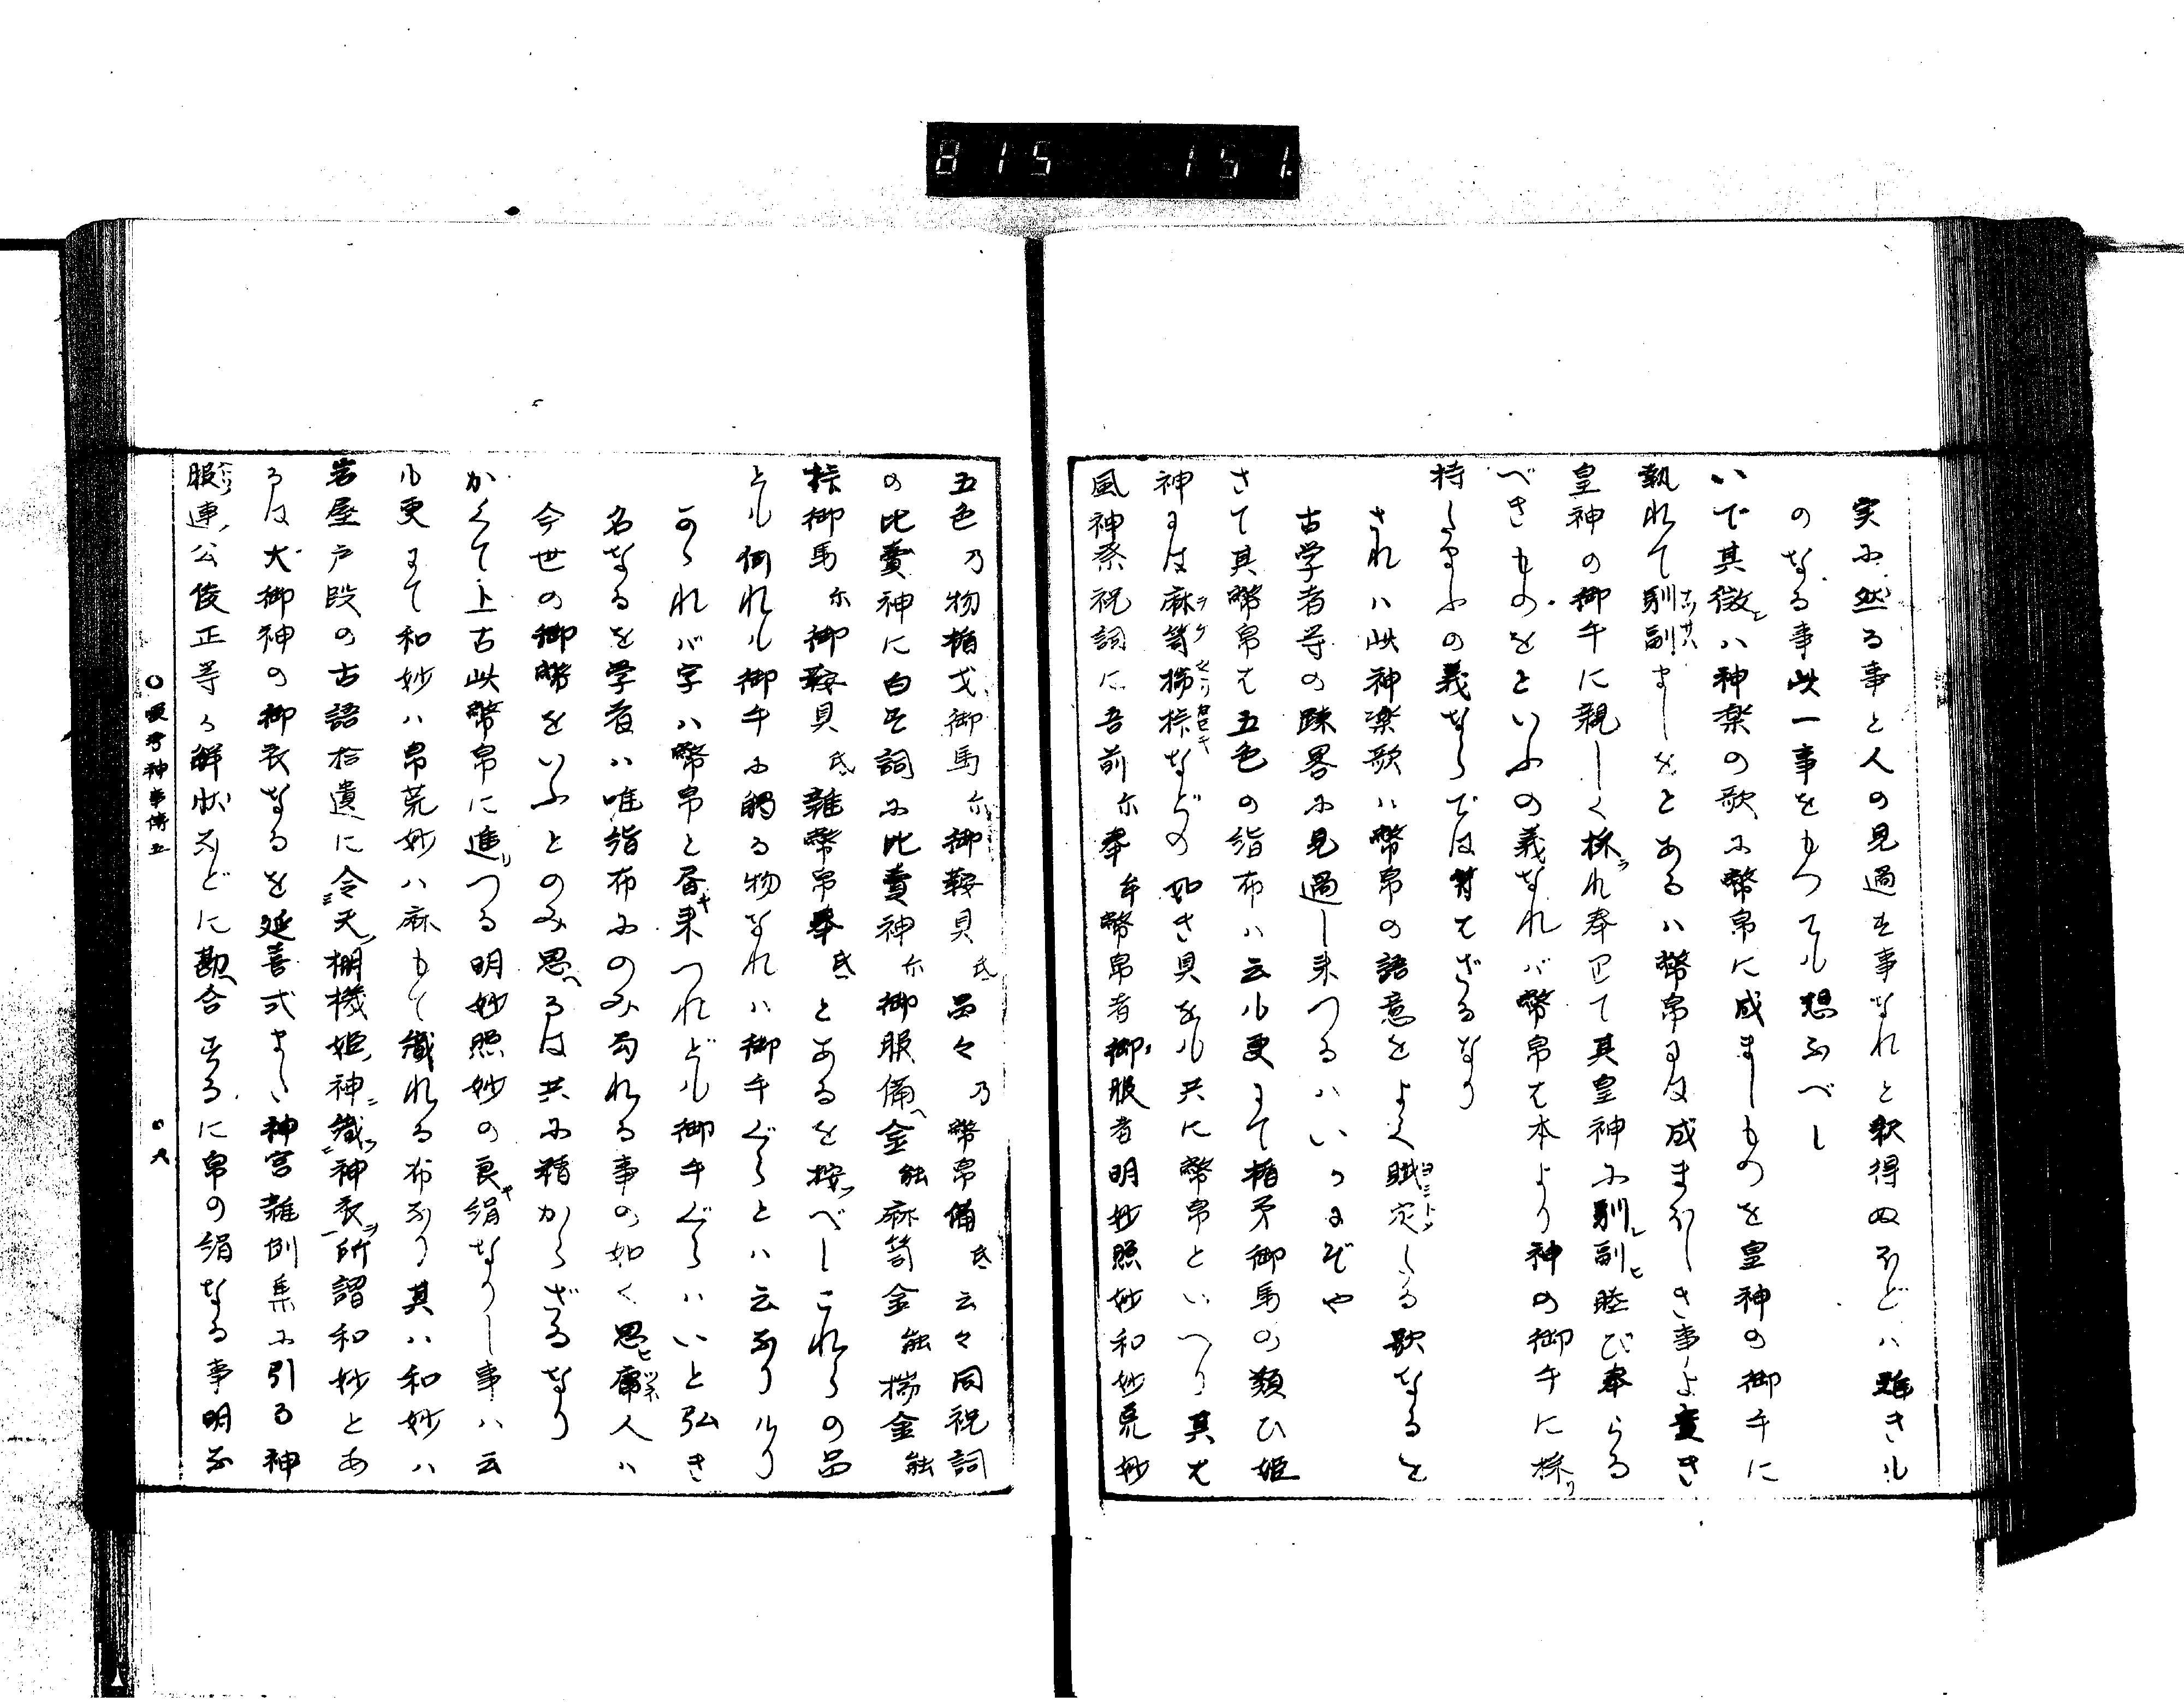 815 151.
実に然る事と人の見過す事なれと釈得ぬほどハ難きも
のなる事此一事をもつても想ふべし
いで其徴ハ神楽の歌に幣帛に成ましものを皇神の御手に
執れて馴副ましをとあるハ幣帛には成まほしき事よ貴き
皇神の御手に親しく採れ奉巳て其皇神に馴副ヒ睦び奉らる
べきものをといふの義なれバ幣帛は本より神の御手に採リ
持しるふの義ならでは有ざるなり
されハ此神楽歌ハ幣帛の語意をよく定しる歌なると
古学者等の踈畧に見過し来つるハいつにぞや
さて其幣帛は五色の絁布ハ云も更にて楯矛御馬の類ひ姫
神には麻笥桛などの如き具をも共に幣帛といへり其は
風神祭祝詞に吾前尓奉牟幣帛者御服者明妙照妙和妙荒妙
五色乃物楯戈御馬尓御鞍具氐品々乃幣帛備氐云々同祝詞
の比賣神に白す詞に比賣神尓御服備金能麻笥金能金能
桛御馬尓御鞍具氐雑幣帛奉氐とあるを按べしこれらの品
とも何れも御手に觸る物なれハ御手ぐらとハ云なりけり
かゝれバ字ハ幣帛と届来つれども御手ぐらハいと弘き
名なるを学者ハ唯絁布にのみ局れる事の如く思ヒ庸人ハ
今世の御幣をいふとのみ思へるは共に精からざるなり
かくて上古此幣帛に進つる明妙照妙の良絹なりし事ハ云
も更にて和妙ハ帛荒妙ハ麻もて織れる布なり其ハ和妙ハ
岩屋戸段の古語拾遺に令天棚機姫神織神衣所謂和妙とあ
るは大御神の御衣なるを延喜式また神宮雜例集に引る神
服連公俊正等ゟ解状などに勘合するに帛の絹なる事明な
神事傳五
九